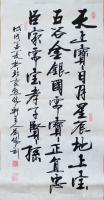 天上寶日月星辰地上寶
五谷金銀國寶正直忠
臣家寶孝子賢孫